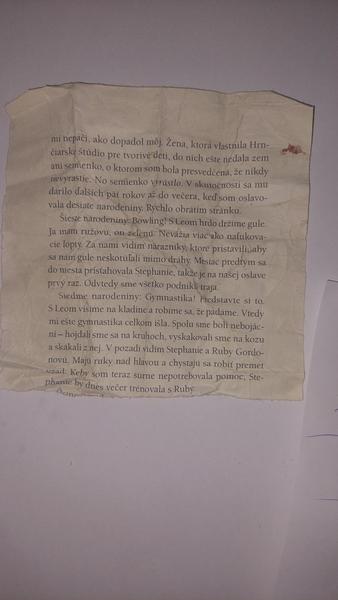 mi nepáči, ako dopadol môj. Žena, ktorá vlastnila Hrn-
čiarske štúdio pre tvorivé deti, do nich ešte nedala zem
ani semienko, o ktorom som bola presvedčená, že nikdy
nevyrastie. No semienko vyrástlo. V skutočnosti sa mu
darilo ďalších päť rokov až do večera, keď som oslavo-
vala desiate narodeniny. Rýchlo obrátim stránku.
Šieste narodeniny: Bowling! S Leom hrdo držíme gule.
Ja mám ružovú, on zelenú. Nevážia viac ako nafukova-
cie lopty. Za nami vidím nárazníky, ktoré pristavili, aby
sa nám gule neskotúľali mimo dráhy. Mesiac predtým sa
do mesta prisťahovala Stephanie, takže je na našej oslave
prvý raz. Odvtedy sme všetko podnikli traja.
Siedme narodeniny: Gymnastika! Predstavte si to.
S Leom visíme na kladine a robíme sa, že padáme. Vtedy
mi ešte gymnastika celkom išla. Spolu sme boli nebojác-
ni – hojdali sme sa na kruhoch, vyskakovali sme na kozu
a skákali z nej. V pozadí vidím Stephanie a Ruby Gordo-
novú. Majú ruky nad hlavou a chystajú sa robiť premet
vzad. Keby som teraz súrne nepotrebovala pomoc, Ste-
phanie by dnes večer trénovala s Ruby.